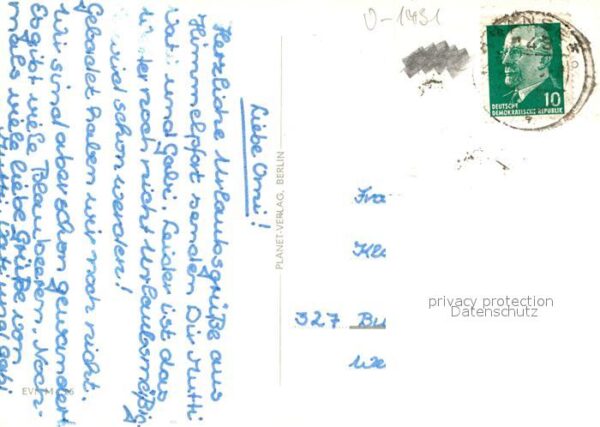 Liebe Omi!
Herzliche Urlaubsgrüße aus
Himmelpfort senden Dir Mutti
Vati und Gabi. Leider ist das
noch nicht urlaubsmäßig,
wird schon werden!
Gebadet haben wir noch nicht.
Wir sind aber schon gewandert
Es gibt viele Blaubeeren. Noch-
mals viele liebe Grüße von
Mutti, Vati und Gabi
PLANET-VERLAG, BERLIN
0-1431
10
DEUTSCHE
DEMOKRATISCHE REPUBLIK
Fra
Kle
327 Bu
We
privacy protection
Datenschutz